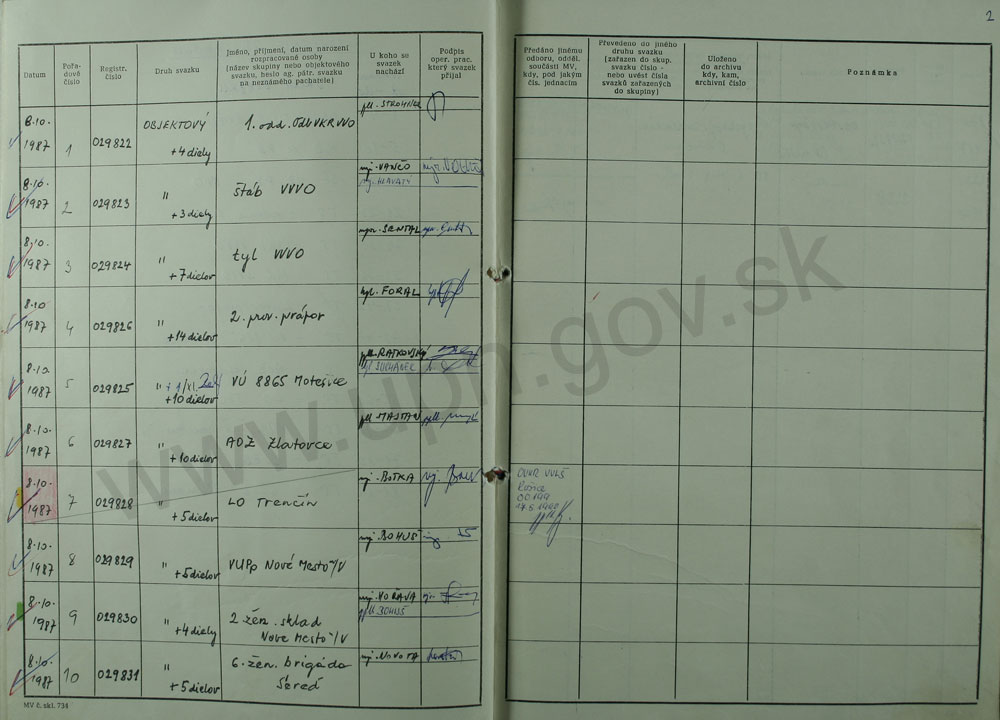 2
Datum
Pořa-
dové
číslo
Registr.
číslo
Druh svazku
Jméno, příjmení, datum narození
rozpracované osoby
(název skupiny nebo objektového
svazku, heslo ag. pátr. svazku
na neznámého pachatele)
U koho se
svazek
nachází
Podpis
oper. prac.
který svazek
přijal
Předáno jinému
odboru, odděl.
součásti MV,
kdy, pod jakým
čís. jednacím
Převedeno do jiného
druhu svazku
(zařazen do skup.
svazku číslo -
nebo uvést čísla
svazků zařazených
do skupiny)
Uloženo
do archivu
kdy, kam,
archivní číslo
Poznámka
8.10.
1987
1
029822
OBJEKTOVÝ
+4 diely
1. odd.
8.10.
1987
2
029823
"
+3 diely
štáb VVVO
mj. VANČO
8.10.
1987
3
029824
"
+7 dielov
tyl VVVO
8.10
1987
4
029826
"
+14 dielov
2. prov. prápor
FORAL
8.10.
1987
5
029825
"
+10 dielov
VÚ 8865 Motešice
SUCHÁNEK
8.10.
1987
6
029827
"
+10 dielov
ADZ Zlatovce
8.10.
1987
7
029828
"
+5 dielov
LO Trenčín
mj. BOTKA
8.10.
1987
8
029829
"
+5 dielov
VUPp Nové Mesto/V
mj. BOHUŠ
8.10.
1987
9
029830
"
+4 diely
2 žen. sklad
Nove Mesto/V
mj. VORAVA
pplk BOHUŠ
8.10.
1987
10
029831
"
+5 dielov
6. žen. brigáda
Sereď
mj. NOVOTA
MV č. skl. 734
www.upn.gov.sk